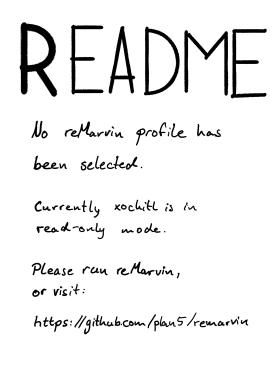 README
No reMarvin profile has
been selected.
Currently xochitl is in
read-only mode.
Please run reMarvin,
or visit:
https://github.com/plan5/remarvin